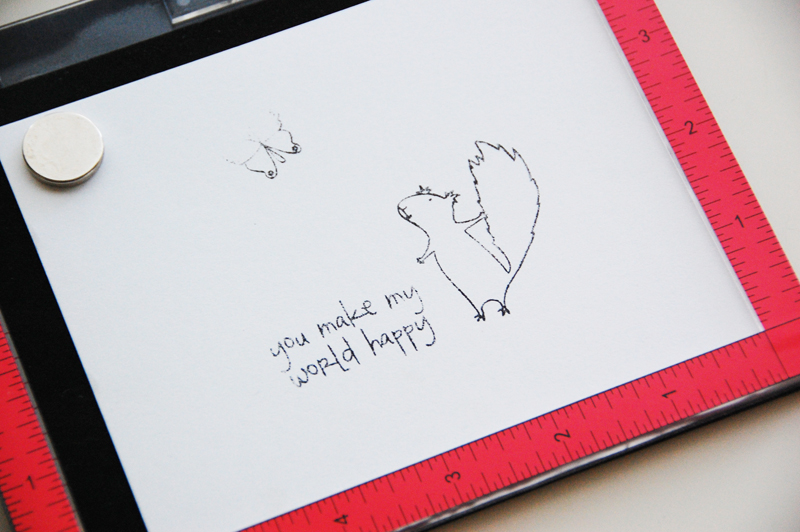 you make my
world happy
3
2
1
1
2
3
4
1